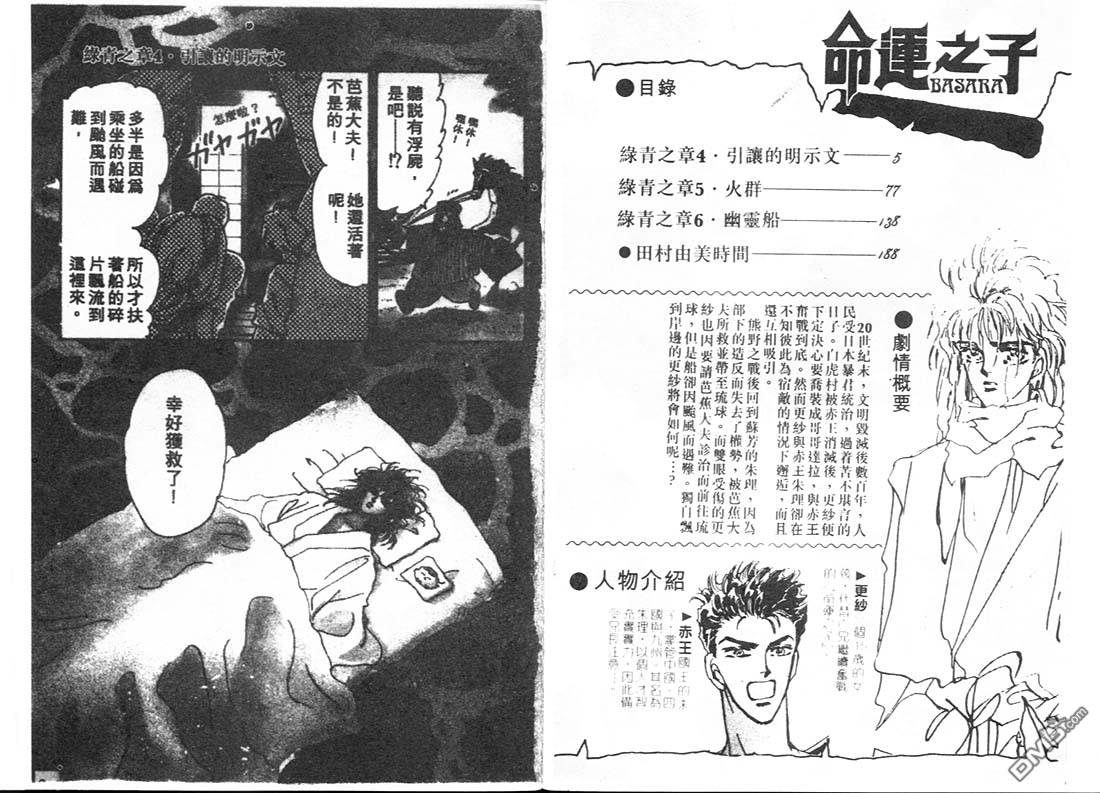 命運之子
BASARA
●目錄
綠青之章4・引讓的明示文——5
綠青之章5・火群——77
綠青之章6・幽靈船——138
●田村由美時間——188
●劇情概要
20世紀末，文明毀滅後數百年，人
民受日本暴君統治，過着苦不堪言的
日子。白虎村被赤王消滅後，更紗便
下定決心要喬裝成哥哥達拉，與赤王
奮戰到底。然而更紗與赤王朱理卻在
不知彼此為宿敵的情況下邂逅，而且
還互相吸引。
熊野之戰後回到蘇芳的朱理，因為
部下的造反而失去了權勢，被芭蕉大
夫所救並帶至琉球。而雙眼受傷的更
紗也因要請芭蕉大夫診治而前往琉
球，但是船卻因颱風而遇難。獨自飄
到岸邊的更紗將會如何呢…？
●人物介紹
▶更紗
▶赤王
國王的末
子，掌管中國、四
國與九州。其名為
朱理，以個人才智
綠青之章4・引讓的明示文
嘿休！
嘿休！
聽說有浮屍，
是吧——!?
芭蕉大夫！
不是的！
她還活著
呢！
怎麼啦？
ガヤガヤ
多半是因為
乘坐的船碰
到颱風而遇
難，
所以才扶
著船的碎
片飄流到
這裡來。
幸好獲救了！
DM5.com